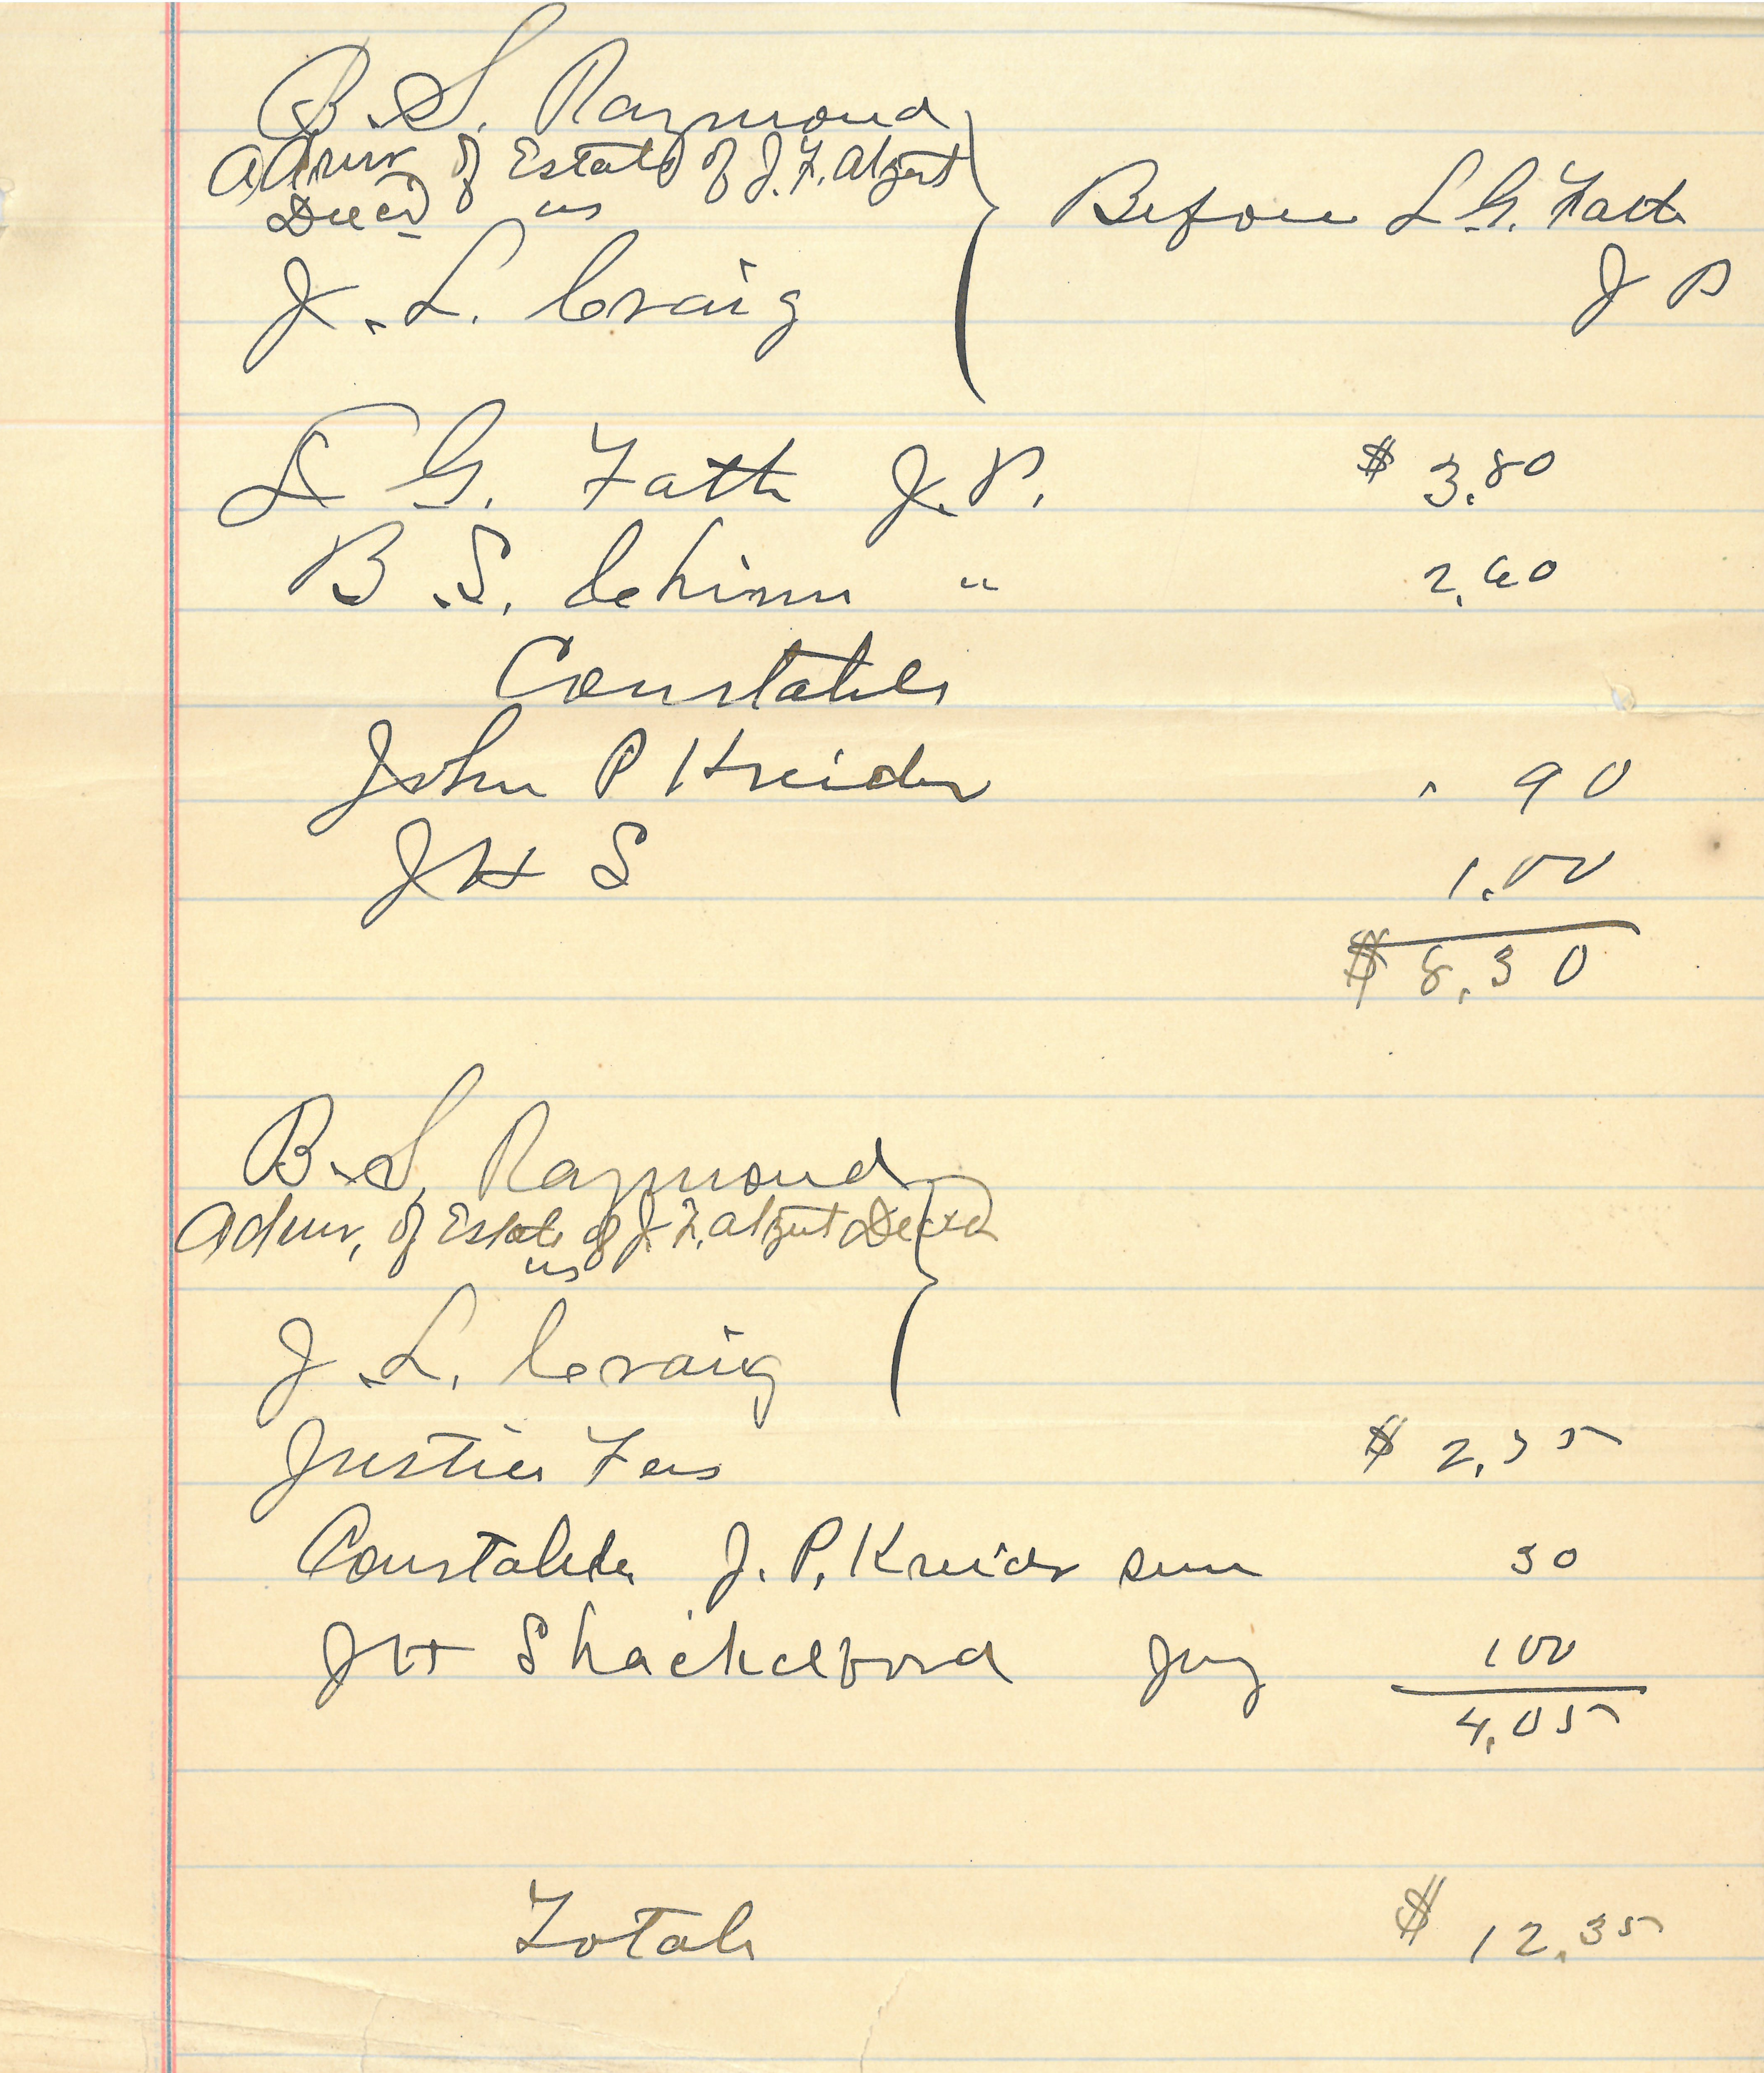 B. S. Raymond
Admr of Estate of J. F. Algert
Decd vs
Before L. G. Fath
J P
J. L. Craig
L G. Fath J. P. $ 3.80
B. S. " 2.60
Constables
John P Kreider . 90
J H S 1.00
$ 8.30
B. S. Raymond
Admr, of Estate of J. F. Algert Decsd
vs
J. L. Craig
Justice Fees $ 2.75
Constable J. P. Kreider 30
J H Shackelford Jury 1 00
4.05
Totals $ 12.35